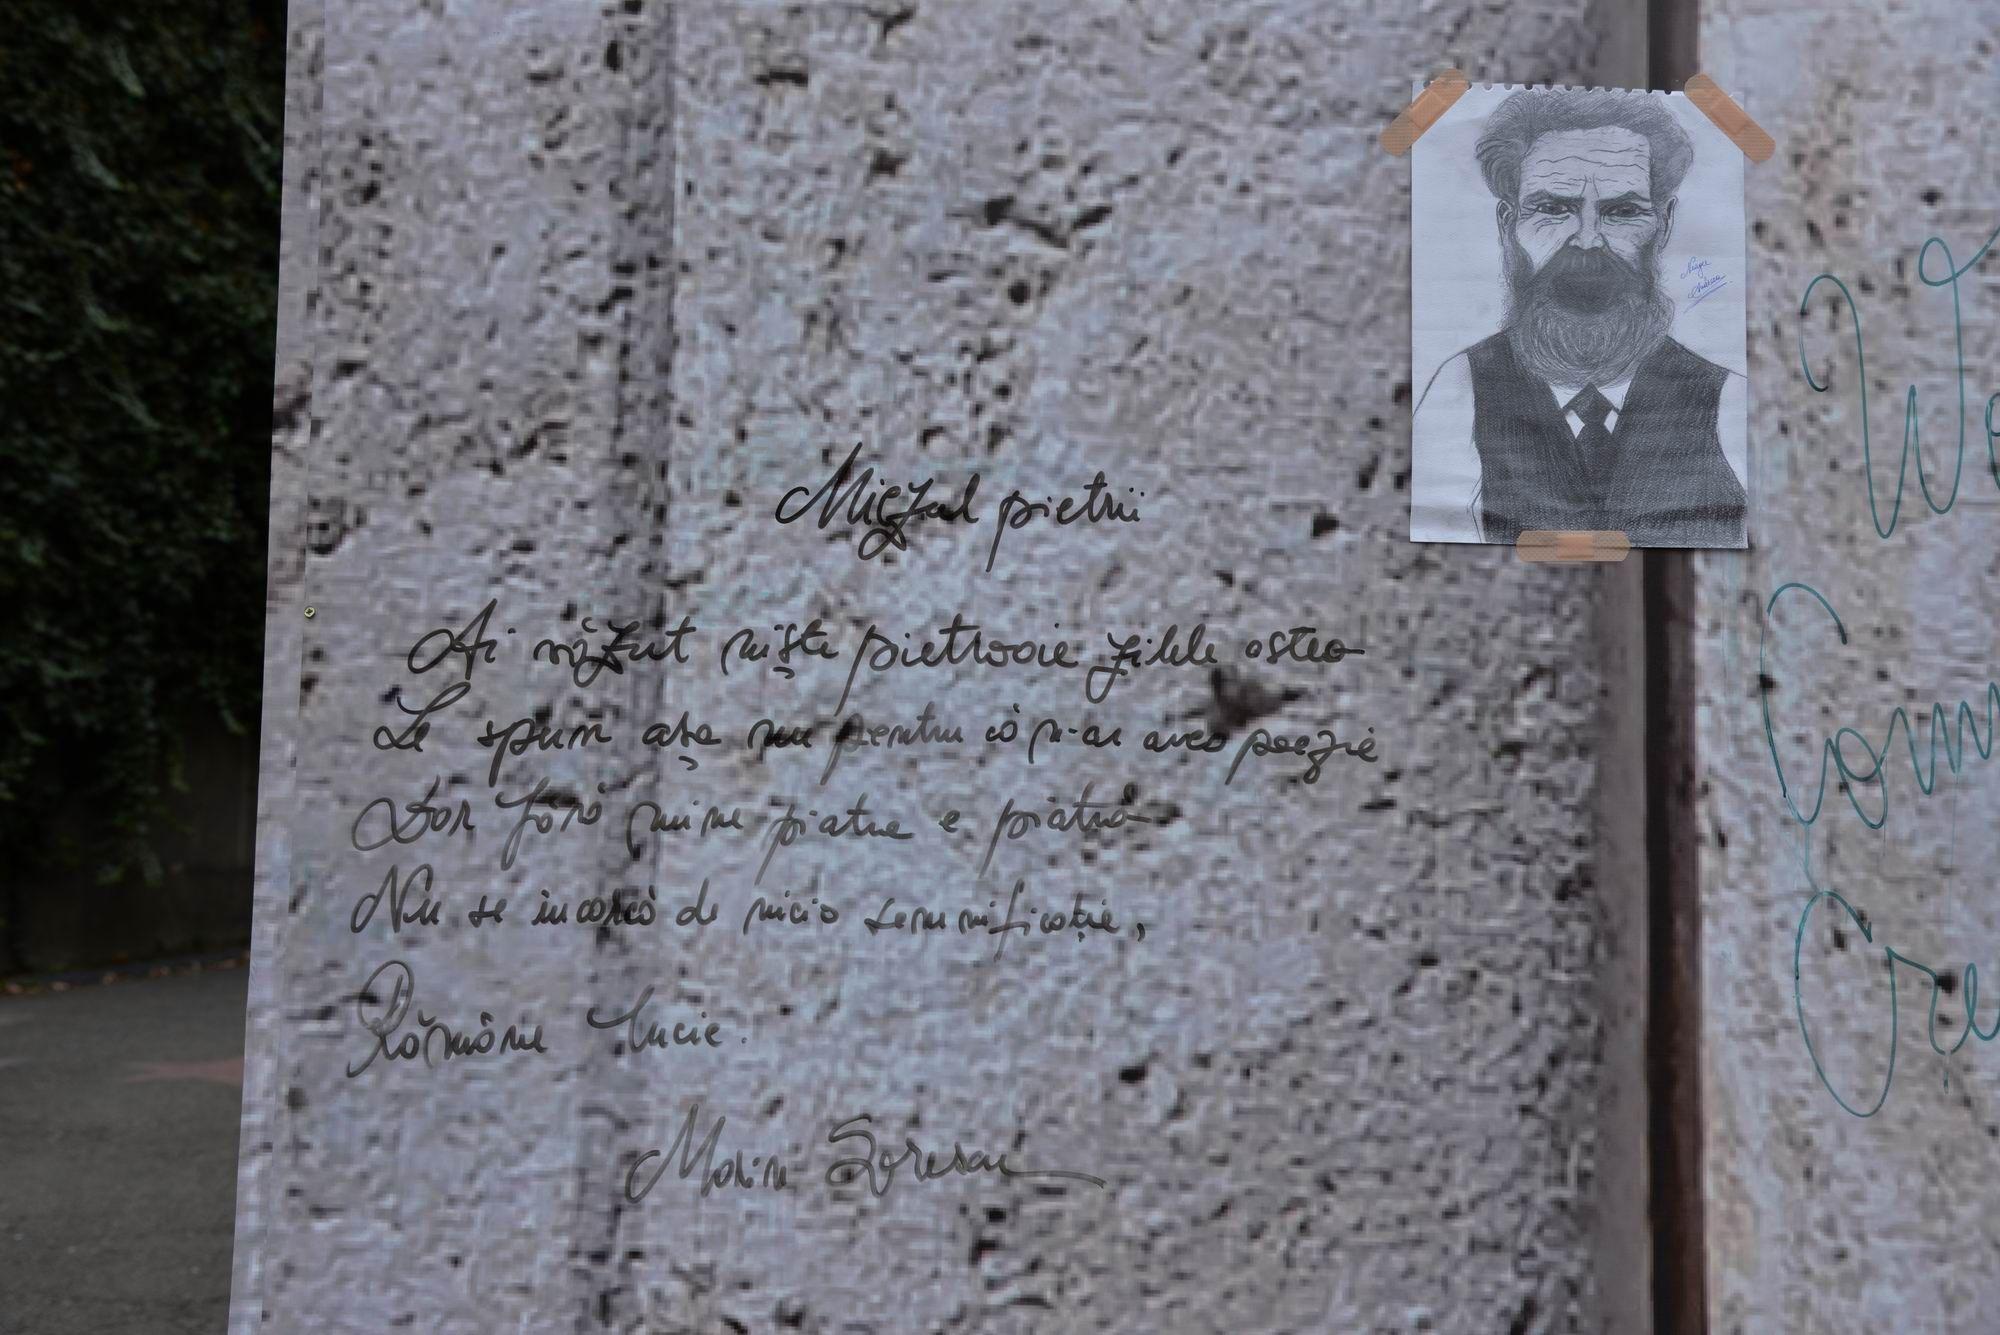 Miezul pietrii
Ai văzut niște pietroaie zilele astea
Le spun așa nu pentru că n-ar avea poezie
Dar fără mine piatra e piatră
Nu se încarcă de nicio semnificație,
Rămâne lucie.
Marin Sorescu